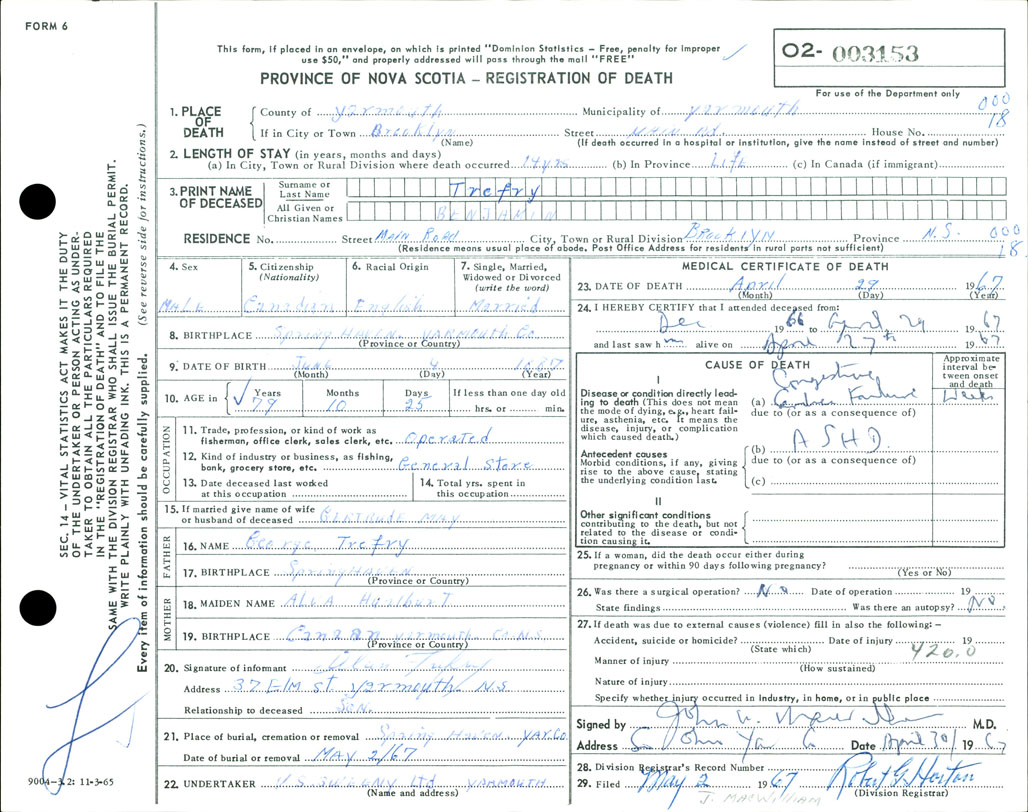 FORM 6
This form, if placed in an envelope, on which is printed "Dominion Statistics – Free, penalty for improper
use $50," and properly addressed will pass through the mail "FREE"
PROVINCE OF NOVA SCOTIA – REGISTRATION OF DEATH
02- 003153
For use of the Department only
1. PLACE OF DEATH County of Yarmouth Municipality of Yarmouth 000
If in City or Town Brooklyn Street Main Rd. House No. 18
(Name) (If death occurred in a hospital or institution, give the name instead of street and number)
2. LENGTH OF STAY (in years, months and days)
(a) In City, Town or Rural Division where death occurred 14 yrs (b) In Province Life (c) In Canada (if immigrant)
3. PRINT NAME OF DECEASED Surname or Last Name Trefry
All Given or Christian Names BENJAMIN
RESIDENCE No. Street Main Road City, Town or Rural Division Brooklyn Province N.S. 000
(Residence means usual place of abode. Post Office Address for residents in rural parts not sufficient) 18
4. Sex 5. Citizenship (Nationality) 6. Racial Origin 7. Single, Married, Widowed or Divorced (write the word)
Male Canadian English Married
8. BIRTHPLACE Spring Haven Yarmouth Co.
(Province or Country)
9. DATE OF BIRTH June 4 1887
(Month) (Day) (Year)
10. AGE in Years Months Days If less than one day old
79 10 25 hrs. or min.
OCCUPATION
11. Trade, profession, or kind of work as
fisherman, office clerk, sales clerk, etc. Operated
12. Kind of industry or business, as fishing,
bank, grocery store, etc. General Store
13. Date deceased last worked
at this occupation
14. Total yrs. spent in
this occupation
15. If married give name of wife
or husband of deceased Gertrude May
FATHER
16. NAME George Trefry
17. BIRTHPLACE Spring Haven
(Province or Country)
MOTHER
18. MAIDEN NAME Hurlburt
19. BIRTHPLACE Yarmouth Co. N.S.
(Province or Country)
20. Signature of informant
Address 37 Elm St. Yarmouth N.S.
Relationship to deceased Son.
21. Place of burial, cremation or removal Spring Haven Yar. Co.
Date of burial or removal May 2/67
22. UNDERTAKER V.S. Sweeny Ltd Yarmouth
(Name and address)
MEDICAL CERTIFICATE OF DEATH
23. DATE OF DEATH April 29 1967
(Month) (Day) (Year)
24. I HEREBY CERTIFY that I attended deceased from:
Dec 1966 to April 29 1967
and last saw him alive on April 27th 1967
CAUSE OF DEATH
Approximate interval between onset and death
I
Disease or condition directly leading
to death (This does not mean
the mode of dying, e.g., heart failure,
asthenia, etc. It means the
disease, injury, or complication
which caused death.)
(a) Congestive Cardiac Failure Weeks
due to (or as a consequence of)
Antecedent causes
Morbid conditions, if any, giving
rise to the above cause, stating
the underlying condition last.
(b) ASHD.
due to (or as a consequence of)
(c)
II
Other significant conditions
contributing to the death, but not
related to the disease or condition
causing it.
25. If a woman, did the death occur either during
pregnancy or within 90 days following pregnancy?
(Yes or No)
26. Was there a surgical operation? No Date of operation 19
State findings Was there an autopsy? No
27. If death was due to external causes (violence) fill in also the following: –
Accident, suicide or homicide? Date of injury 19
(State which) 420.0
Manner of injury
(How sustained)
Nature of injury
Specify whether injury occurred in industry, in home, or in public place
Signed by John M.D.
Address Date April 30/ 1967
28. Division Registrar's Record Number
29. Filed May 2 1967 Robert G Horton
(Division Registrar)
J. MacWilliam
SEC. 14 – VITAL STATISTICS ACT MAKES IT THE DUTY
OF THE UNDERTAKER OR PERSON ACTING AS UNDERTAKER
TO OBTAIN ALL THE PARTICULARS REQUIRED
IN THE "REGISTRATION OF DEATH" AND TO FILE THE
SAME WITH THE DIVISION REGISTRAR WHO SHALL ISSUE THE BURIAL PERMIT.
WRITE PLAINLY WITH UNFADING INK. THIS IS A PERMANENT RECORD.
Every item of information should be carefully supplied. (See reverse side for instructions.)
9004-3.2: 11-3-65